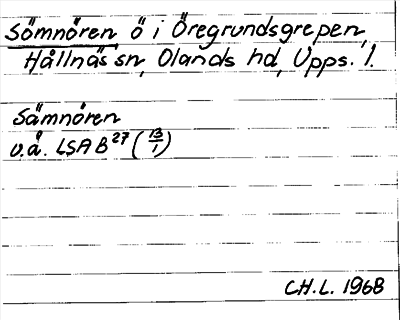 Sömnören ö i Öregrundsgrepen,
Hållnäs sn, Olands hd, Upps. l.
Sämnören
u.å. LSA B²⁷ (13/1)
CH.L. 1968